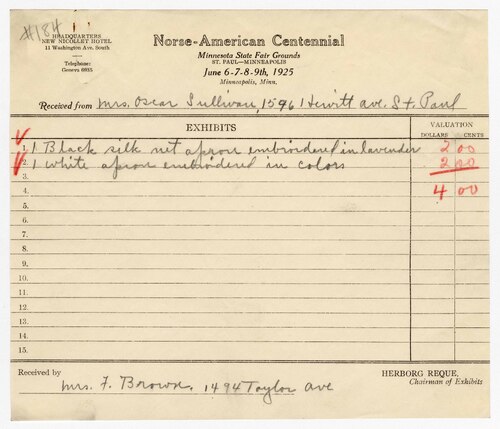 #184
HEADQUARTERS
NEW NICOLLET HOTEL
11 Washington Ave. South
Telephone:
Geneva 6835
Norse-American Centennial
Minnesota State Fair Grounds
ST. PAUL—MINNEAPOLIS
June 6-7-8-9th, 1925
Minneapolis, Minn.
Received from Mrs. Oscar Sullivan, 1596 Hewitt ave. St. Paul
EXHIBITS
VALUATION
DOLLARS CENTS
1. 1 Black silk net apron embroidered in lavender 2 00
2. 1 white apron embroidered in colors 2 00
3. 4 00
4.
5.
6.
7.
8.
9.
10.
11.
12.
13.
14.
15.
Received by
Mrs. F. Brown. 1494 Taylor ave
HERBORG REQUE,
Chairman of Exhibits